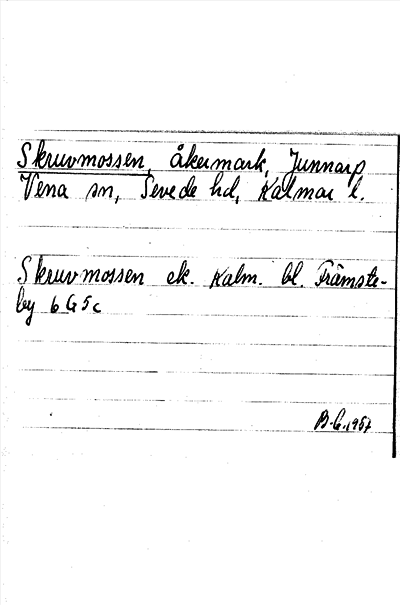 Skruvmossen, åkermark, Junnarp
Vena sn, Sevede hd, Kalmar l.
Skruvmossen ek. Kalm. bl. Främste-
by 6 G 5 c
B. G. 1957